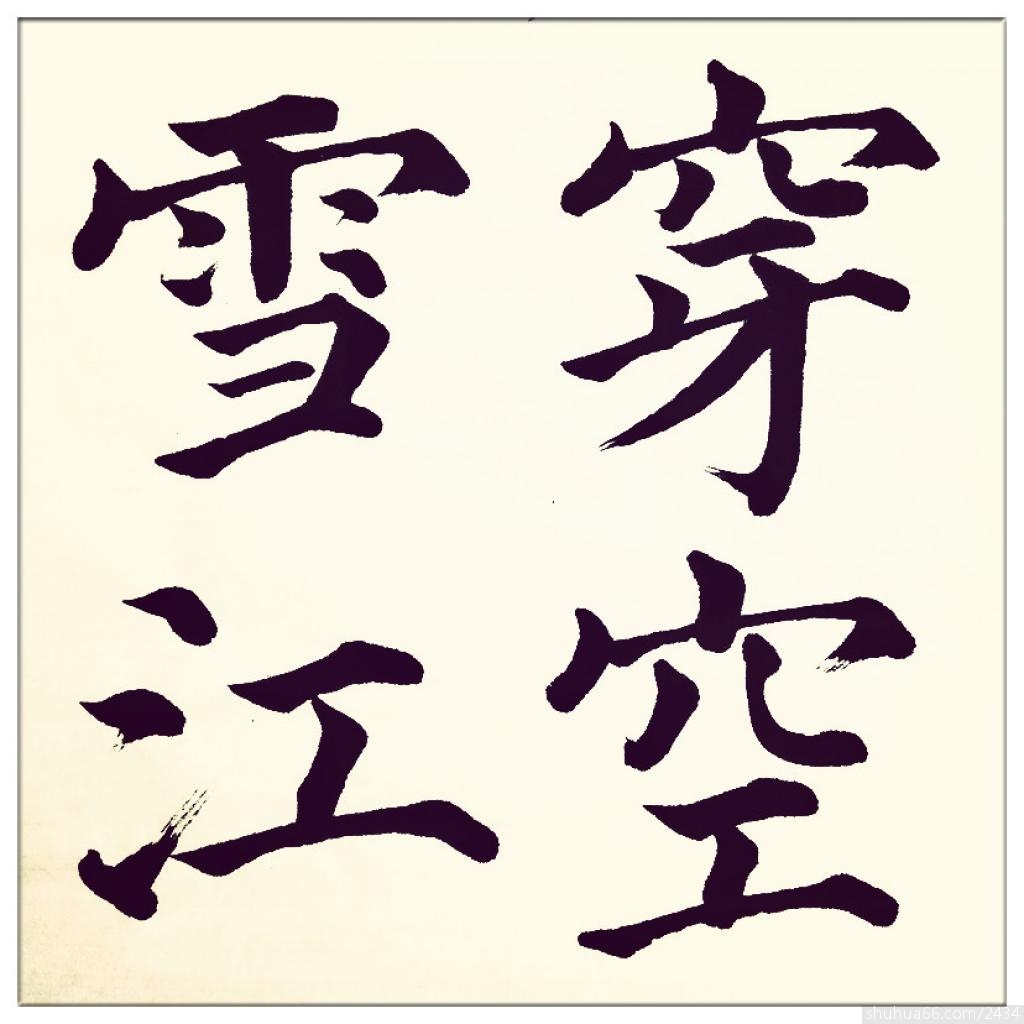 穿空
雪江
shuhua66.com/2434